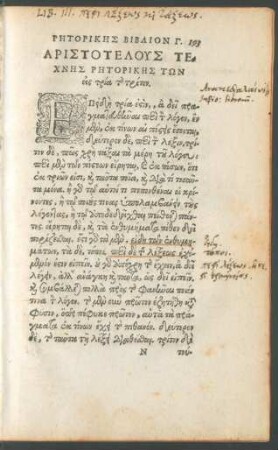 LIB. III. περὶ λέξεως καὶ τάξεως.
ΡΗΤΟΡΙΚΗΣ ΒΙΒΛΙΟΝ Γ. 193
ΑΡΙΣΤΟΤΕΛΟΥΣ ΤΕ-
ΧΝΗΣ ΡΗΤΟΡΙΚΗΣ ΤΩΝ
εἰς τρία τὸ τρίτον.
ΕΠειδὴ τρία ἐστὶν, ἃ δεῖ πραγ-
ματευθῆναι περὶ τὸν λόγον, ἓν
μὲν, ἐκ τίνων αἱ πίστεις ἔσονται,
δεύτερον δὲ, περὶ τὴν λέξιν, τρί-
τον δὲ, πῶς χρὴ τάξαι τὰ μέρη τοῦ λόγου·
περὶ μὲν τῶν πίστεων εἴρηται, καὶ ἐκ πόσων, ὅτι
ἐκ τριῶν εἰσι, καὶ ταῦτα ποῖα, καὶ διὰ τί τοσαῦ-
τα μόνα. ἢ γὰρ τῷ αὐτοί τι πεπονθέναι οἱ κρί-
νοντες, ἢ τῷ ποιούς τινας ὑπολαμβάνειν τοὺς
λέγοντας, ἢ τῷ ἀποδεδεῖχθαι πείθονται πάν-
τες. εἴρηται δὲ, καὶ τὰ ἐνθυμήματα πόθεν δεῖ
πορίζεσθαι. ἔστι γὰρ τὰ μὲν, εἴδη τῶν ἐνθυμη-
μάτων, τὰ δὲ, τόποι. περὶ δὲ τῆς λέξεως ἐχό-
μενόν ἐστιν εἰπεῖν. οὐ γὰρ ἀπόχρη τὸ ἔχειν, ἃ δεῖ
λέγειν, ἀλλ' ἀνάγκη καὶ ταῦτα, ὡς δεῖ εἰπεῖν.
καὶ συμβάλλεται πολλὰ πρὸς τὸ φανῆναι ποιόν
τινα τὸν λόγον. τὸ μὲν οὖν πρῶτον ἐζητήθη κατὰ
φύσιν, ὅπερ πέφυκε πρῶτον, αὐτὰ τὰ πρά-
γματα ἐκ τίνων ἔχει τὸ πιθανόν. δεύτερον
δὲ, τὸ ταῦτα τῇ λέξει διαθέσθαι. τρίτον δὲ
N
εἴδη.
τόποι.
περὶ λέξεως